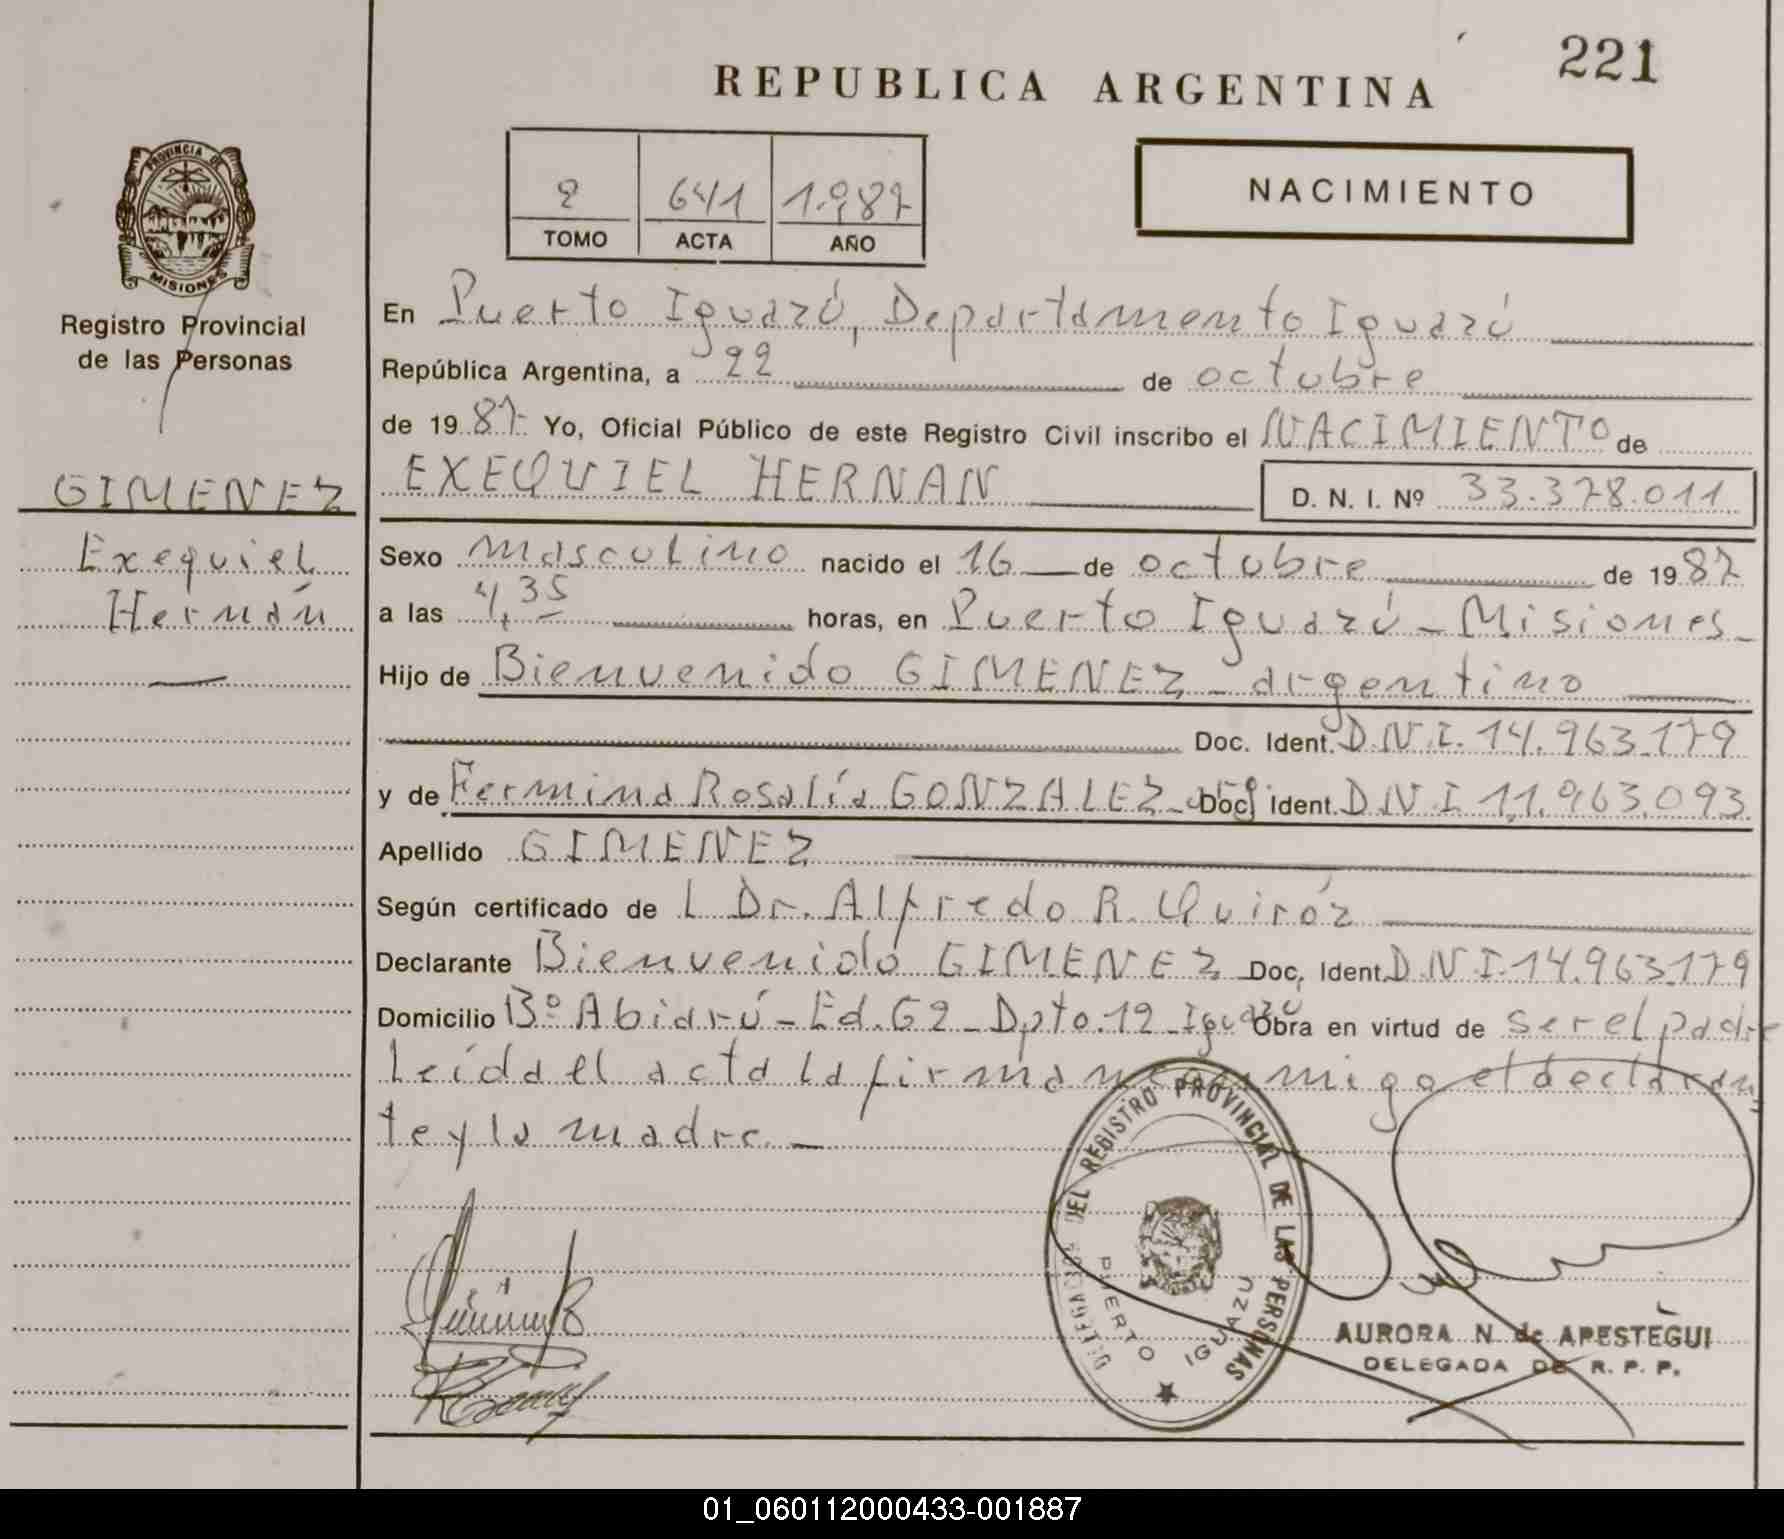 221
REPUBLICA ARGENTINA
PROVINCIA DE
MISIONES
Registro Provincial
de las Personas
2 641 1.987
TOMO ACTA AÑO
NACIMIENTO
En Puerto Iguazú, Departamento Iguazú
República Argentina, a 22 de octubre
de 1987 Yo, Oficial Público de este Registro Civil inscribo el NACIMIENTO de
GIMENEZ
EXEQUIEL HERNAN
D. N. I. Nº 33.378.011
Exequiel
Hernán
Sexo masculino nacido el 16 de octubre de 1987
a las 4,35 horas, en Puerto Iguazú - Misiones-
Hijo de Bienvenido GIMENEZ - argentino
Doc. Ident. D.N.I. 14.963.179
y de Fermina Rosalía GONZALEZ - Doc. Ident. D.N.I 11.963.093
Apellido GIMENEZ
Según certificado de L Dr. Alfredo R. Quiróz
Declarante Bienvenido GIMENEZ Doc, Ident. D.N.I.14.963.179
Domicilio Bº Abiarú - Ed. G2 - Dpto. 12 - Iguazú Obra en virtud de ser el padre
Leída el acta la firman conmigo el declaran
te y la madre. -
DELEGACION DEL REGISTRO PROVINCIAL DE LAS PERSONAS
PUERTO IGUAZU
AURORA N. de APESTEGUI
DELEGADA DE R. P. P.
01_060112000433-001887